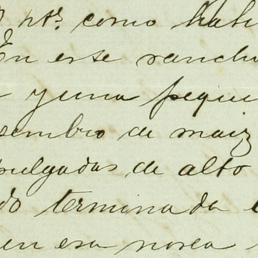 ntrs. como habi
En este ranch
y una peque
sembro de maiz
pulgadas de alto
do terminada
en esa noria